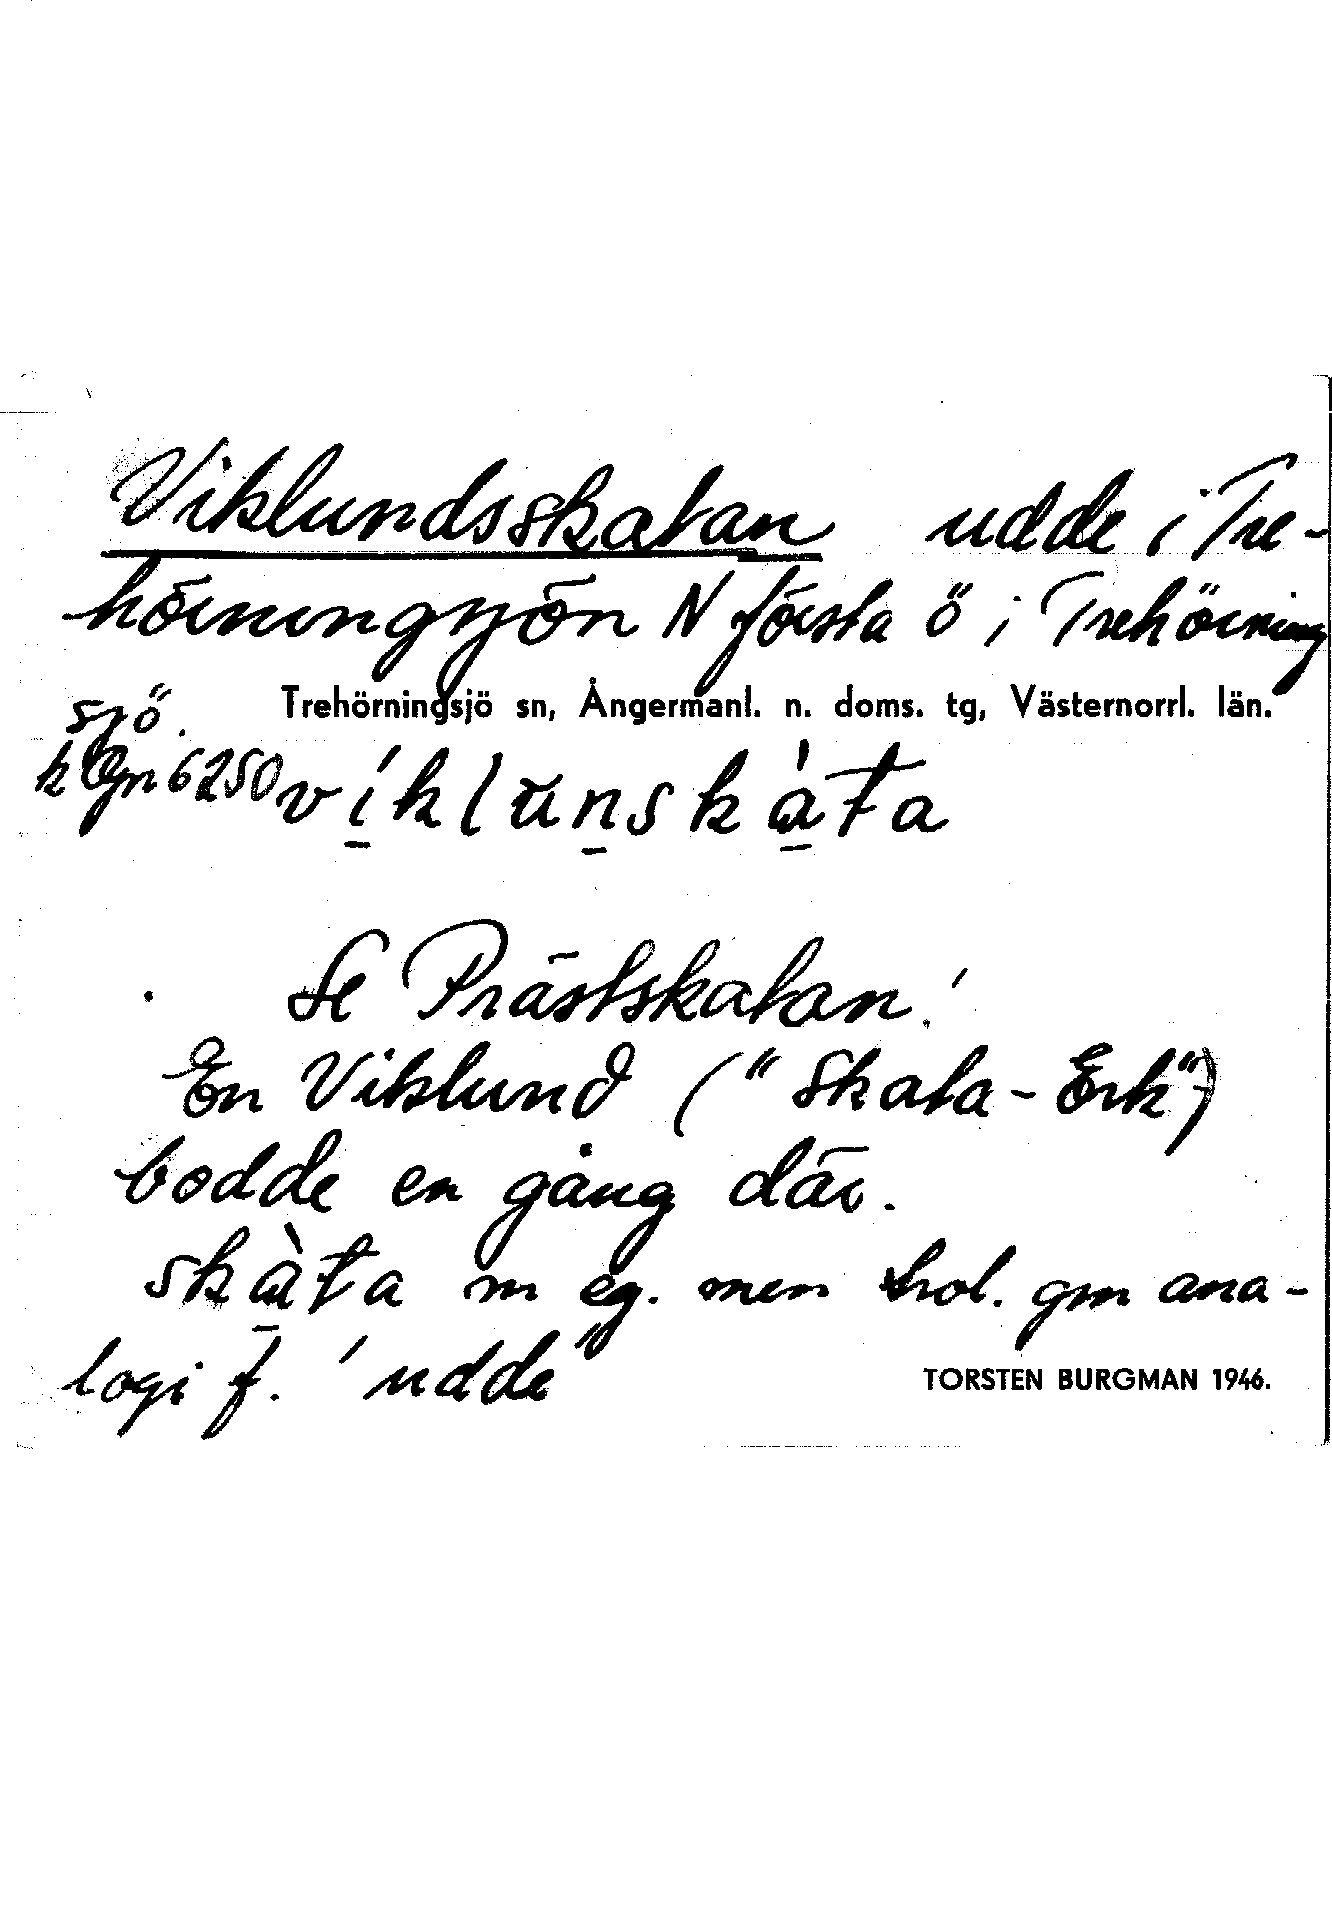 Viklundsskatan udde i Tre-
hörningsjön N första ö i Trehörning
sjö. Trehörningsjö sn, Ångermanl. n. doms. tg, Västernorrl. län.
6250 víklunskàta
Se Prästskatan!
En Viklund ("Skata-Erk")
bodde en gång där.
skàta m eg. men trol. gm ana-
logi f. 'udde"
TORSTEN BURGMAN 1946.